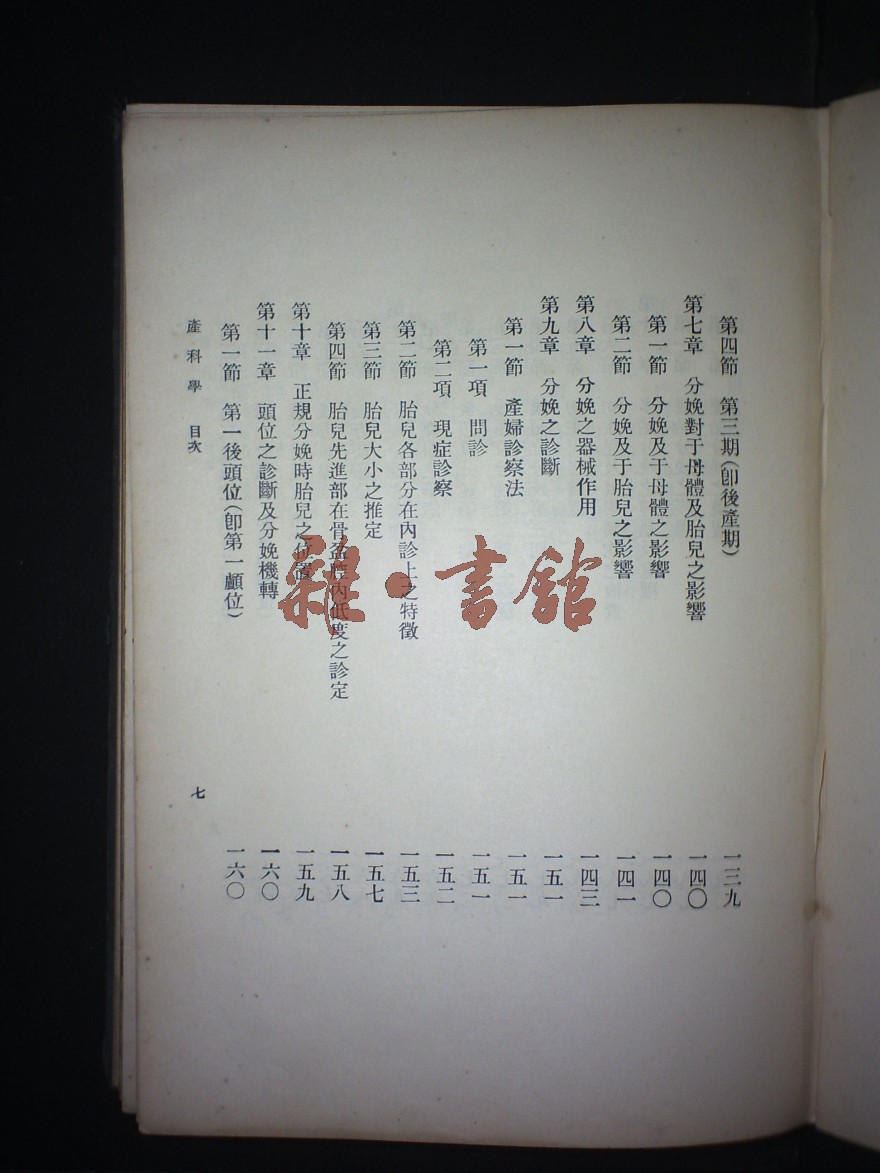 第四節　第三期(卽後產期)　一三九
第七章　分娩對于母體及胎兒之影響　一四〇
第一節　分娩及于母體之影響　一四〇
第二節　分娩及于胎兒之影響　一四一
第八章　分娩之器械作用　一四三
第九章　分娩之診斷　一五一
第一節　產婦診察法　一五一
第一項　問診　一五一
第二項　現症診察　一五二
第二節　胎兒各部分在內診上之特徵　一五三
第三節　胎兒大小之推定　一五七
第四節　胎兒先進部在骨盆腔內低度之診定　一五八
第十章　正規分娩時胎兒之位置　一五九
第十一章　頭位之診斷及分娩機轉　一六〇
第一節　第一後頭位(卽第一顱位)　一六〇
產科學　目次　七
雜·書館